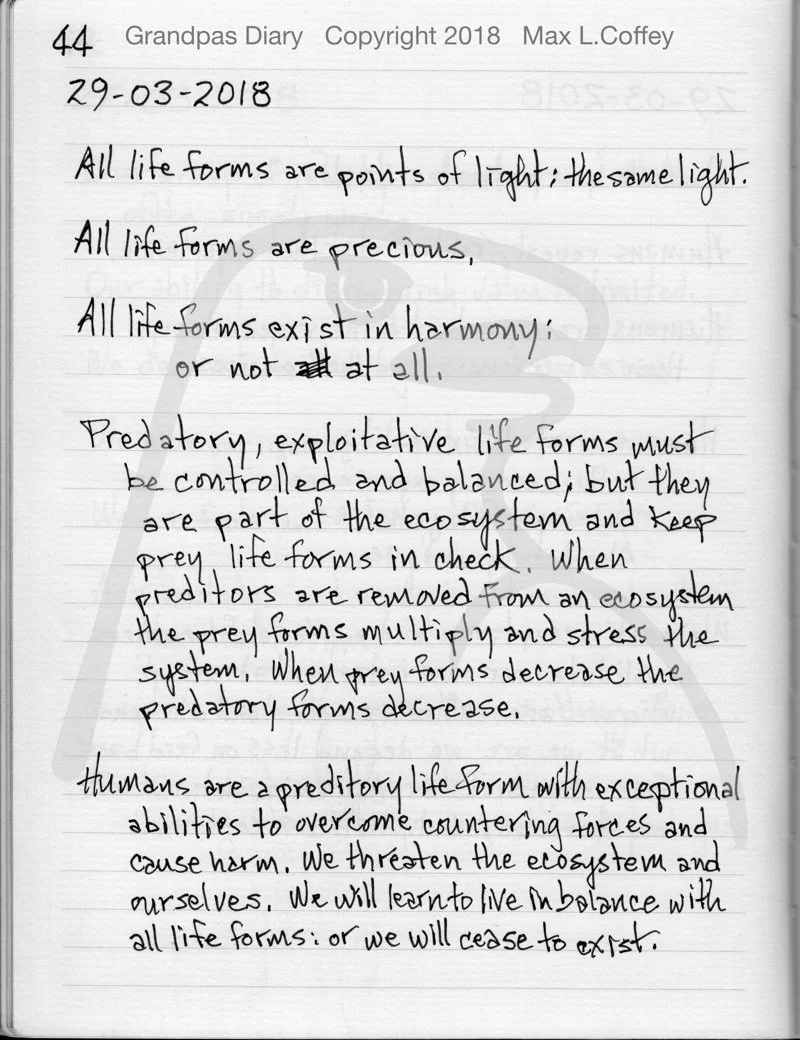 44 Grandpas Diary Copyright 2018 Max L.Coffey
29-03-2018
All life forms are points of light; the same light.
All life forms are precious,
All life forms exist in harmony:
or not all at all.
Predatory, exploitative life forms must
be controlled and balanced; but they
are part of the ecosystem and keep
prey life forms in check. When
preditors are removed from an ecosystem
the prey forms multiply and stress the
system. When prey forms decrease the
predatory forms decrease.
Humans are a preditory life form with exceptional
abilities to overcome countering forces and
cause harm. We threaten the ecosystem and
ourselves. We will learn to live in balance with
all life forms: or we will cease to exist.